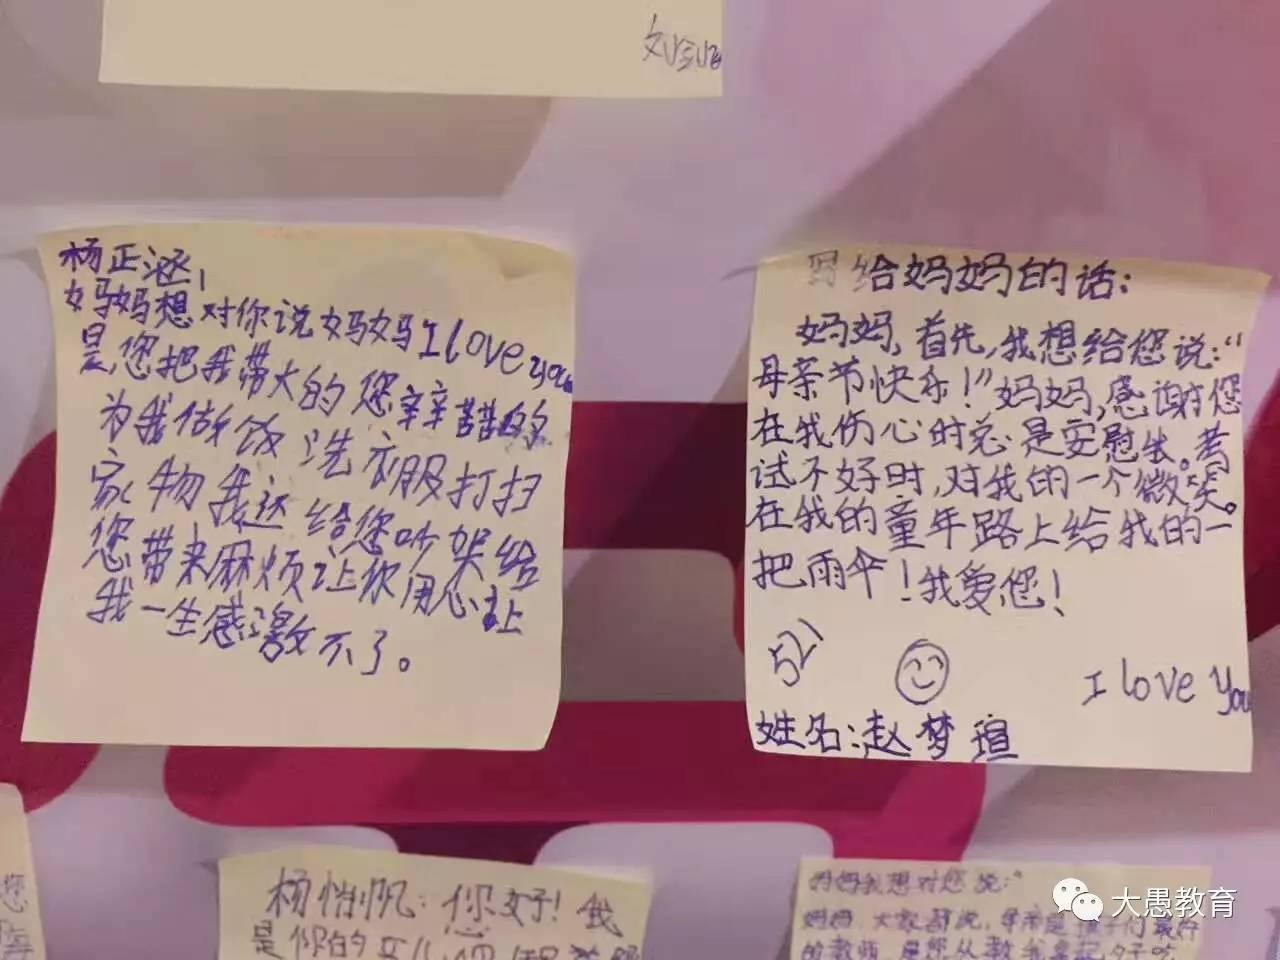 杨正涵,
妈妈想对你说妈妈I love you
是您把我带大的您辛辛苦苦的
为我做饭洗衣服打扫
家物我还给您吵架给
您带来麻烦让你用心让
我一生感激不了。
写给妈妈的话:
妈妈,首先,我想给您说:“
母亲节快乐!”妈妈,感谢您
在我伤心时总是安慰生。考
试不好时,对我的一个微笑。
在我的童年路上给我的一
把雨伞!我爱您!
521
I love You
姓名:赵梦瑄
杨怡帆:您好!我
是你的女儿
妈妈我想对您说:“
妈妈,大家都说,母亲是孩子们最好
的教师,是您从教我拿起勺子吃
您
大愚教育